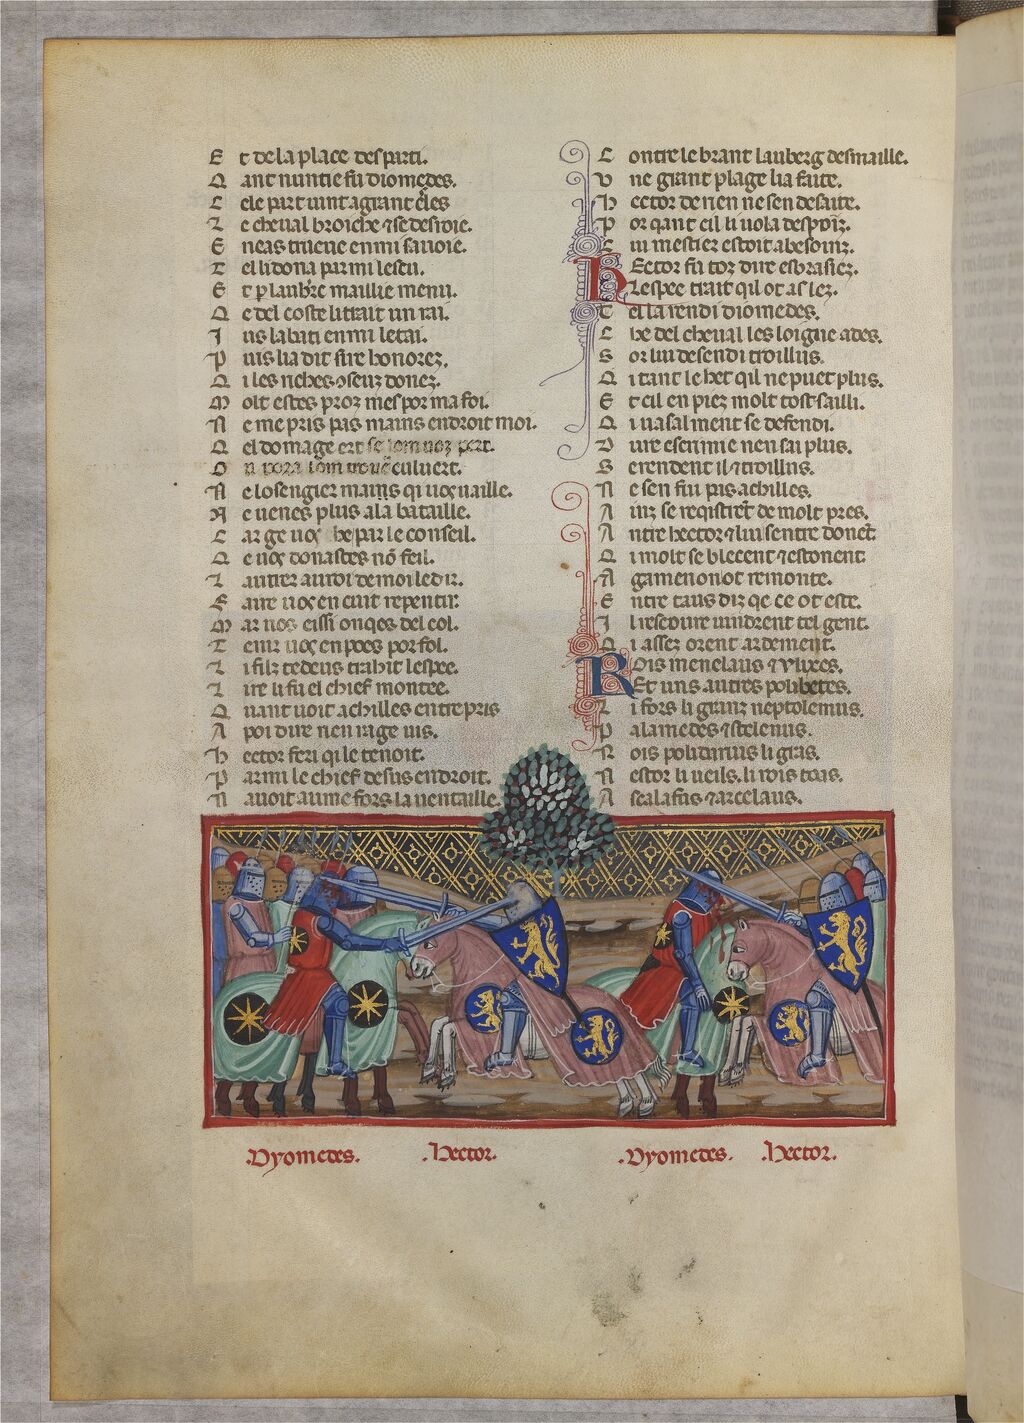 E t de la place desparti.
Q ant nuntie fu diomedes.
C ele part uint a grant esles
L e cheual broiche & se desroie.
E neas trueue enmi sa uoie.
T el li dona parmi lescu.
E t p lauberc maillie menu.
Q e del coste li trait un rai.
I us labati enmi le tai.
P uis lia dit sire honorez.
Q i les riches ꝯseuz donez.
M olt estes proz mes por ma foi.
N e me pris pas mains endroit moi.
Q el domage ert
O culuert.
N e losengier mains qi uos uaille.
N e uenes plus a la bataille.
C ar ge uos he par le conseil.
Q e uos donastes nō feil.
L autrer au roi de moi ledir.
F aire uos en cuit repentir.
M ar uos eissi onqes del col.
T enir uos en poes por fol.
L i filz tedeus trahit lespee.
L ire li fu el chief montee.
Q uant uoit achilles entrepris
A poi dire nen rage uis.
H ector feri qi le tenoit.
P armi le chief desus endroit.
N auoit aume fors la uentaille.
C ontre le brant lauberg desmaille.
U ne grant plage lia faite.
H ector de rien ne sen desaite.
P or qant cil li uola despoir.
C ui mestier estoit a besoinz.
HEctor fu toz dire esbrasiez.
Lespee trait qil ot as lez.
T el la rendi diomedes.
C he del cheual les loigne ades.
S or lui desendi troillus.
Q i tant le het qil ne puet plus.
E t cil en piez molt tost sailli.
Q i uasalment se defendi.
D ure escrimie nen sai plus.
G erendent il & troillus.
N e sen fui pas achilles.
A inz se reqistrēt de molt pres.
A ntre hector & lui sentre donēt
Q i molt se blecent & estonent
A gamenon ot remonte.
E ntre taus diz qe ce ot este.
I l rescoure uindrent tel gent.
Q i assez orent ardement.
ROis menelaus & vlixes.
Et uns autres polibetes.
L i fors li granz neptolemus.
P alamedes & stelenus.
R ois polidarius li gras.
N estor li ueils. li rois teas.
A scalafus & arcelaus.
Dyomedes. Hector. Dyomedes. Hector.